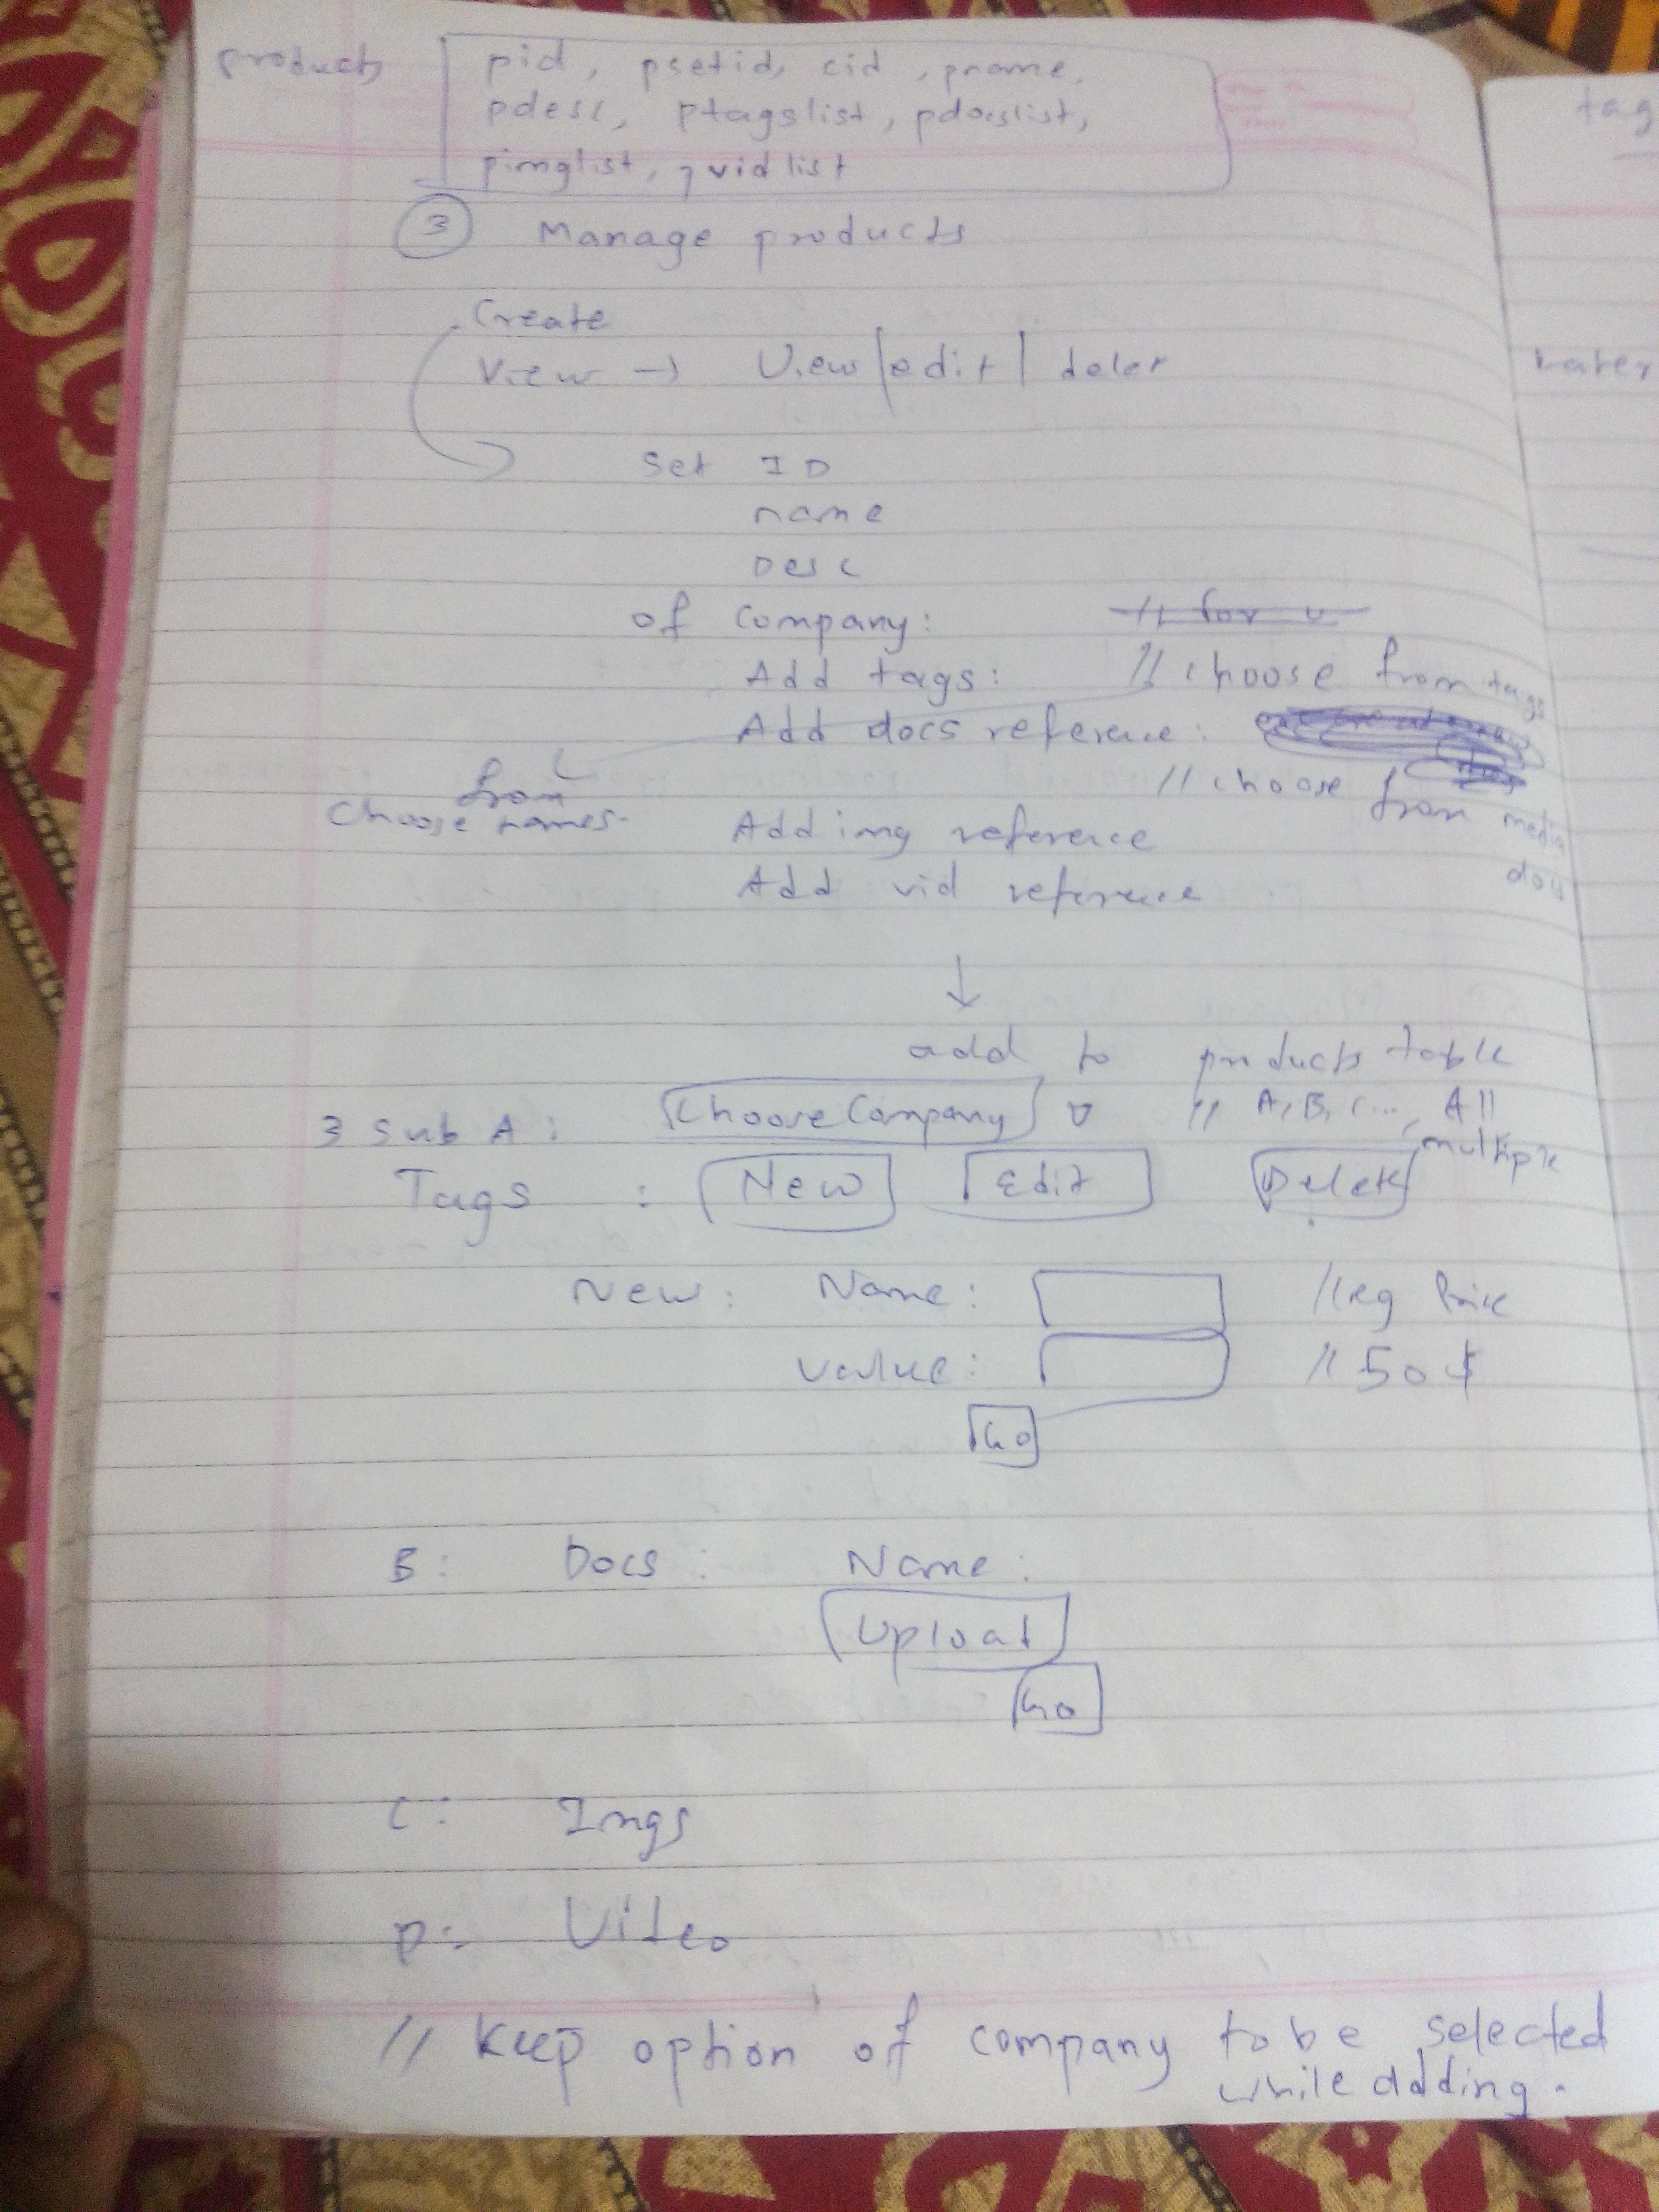 products pid, psetid, cid, pname,
pdesc, ptagslist, pdocslist,
pimglist, pvidlist
3 Manage products
Create
View → View | edit | delet
Set ID
name
Desc
of company: // for v
Add tags: // choose from tags
Add docs reference:
// choose from media docs
from
Choose names.
Add img reference
Add vid reference
↓
add to products table
3 Sub A: Choose Company // A, B, C..., All
multiple
Tags : New Edit Delete
New: Name: // eg Price
value: // 50 $
Go
B: Docs: Name:
Upload
Go
C: Imgs
D: Video
// Keep option of company to be selected
while adding.
tag